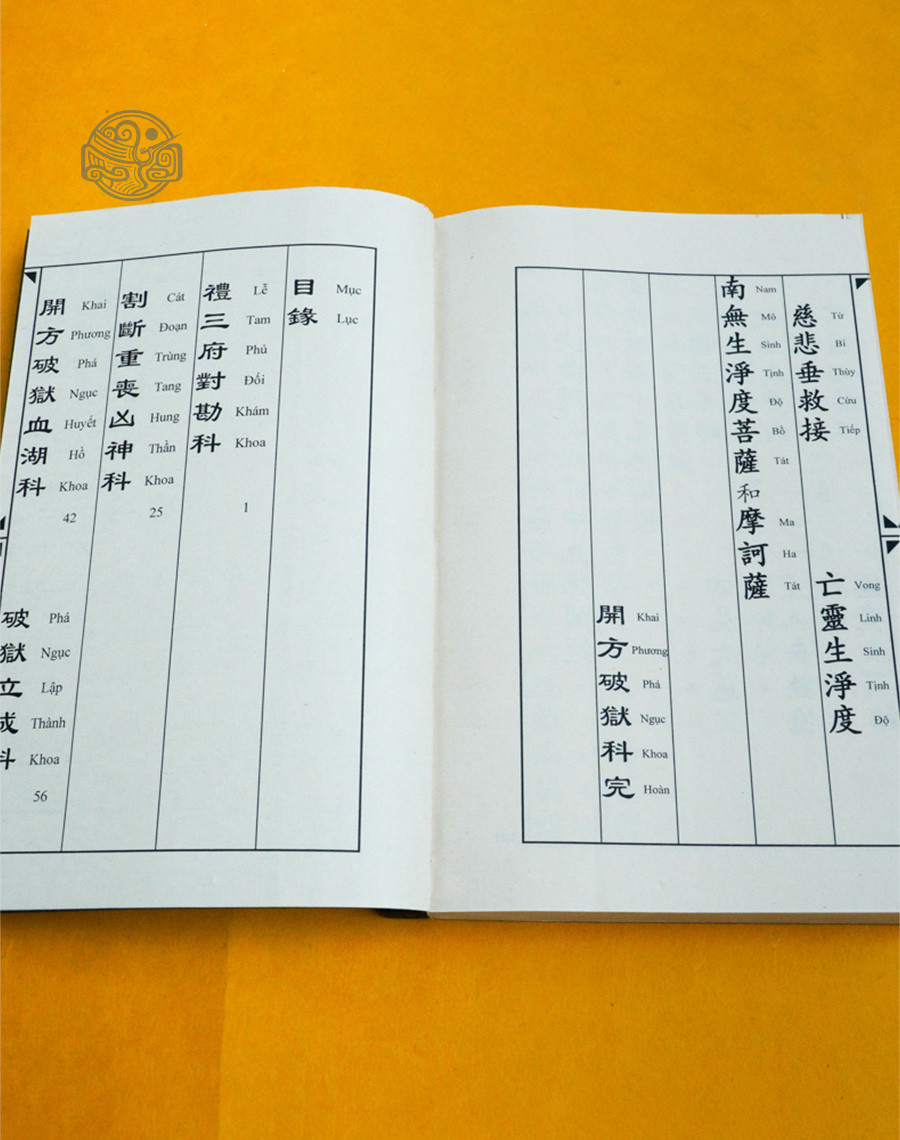 慈悲垂救接 亡靈生淨度
Từ Bi Thùy Cứu Tiếp Vong Linh Sinh Tịnh Độ
南無生淨度菩薩和摩訶薩
Nam Mô Sinh Tịnh Độ Bồ Tát Ma Ha Tát
開方破獄科完
Khai Phương Phá Ngục Khoa Hoàn
目錄
Mục Lục
禮三府對勘科
Lễ Tam Phủ Đối Khám Khoa 1
割斷重喪凶神科
Cát Đoạn Trùng Tang Hung Thần Khoa 25
開方破獄血湖科
Khai Phương Phá Ngục Huyết Hồ Khoa 42
破獄立成科
Phá Ngục Lập Thành Khoa 56